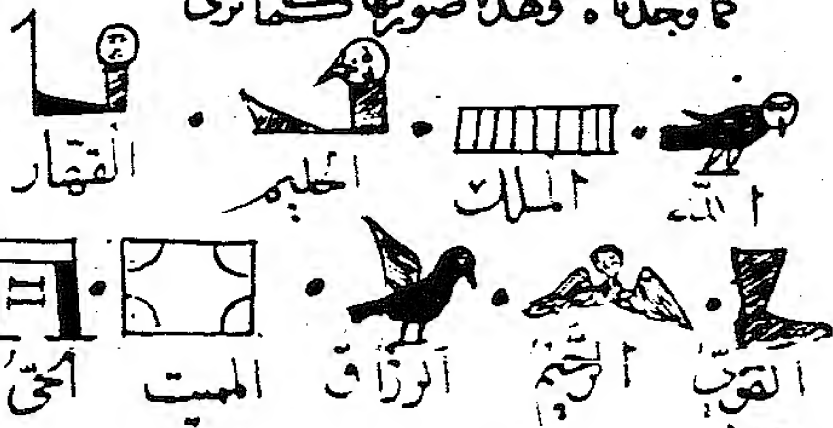 كما وجدنا. وهذه صورتها كما ترى
الله الملك الحليم القهار
القويّ الرَّحِيمُ الرزاق المميت الحيّ